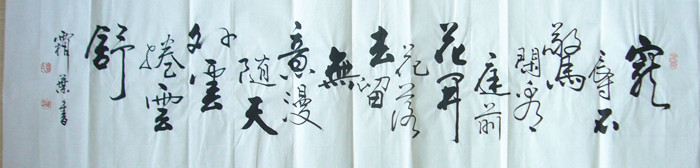 寵
辱不
驚
閑看
庭前
花開
花落
去留
無
意漫
随天
外雲
捲雲
舒
霜葉書